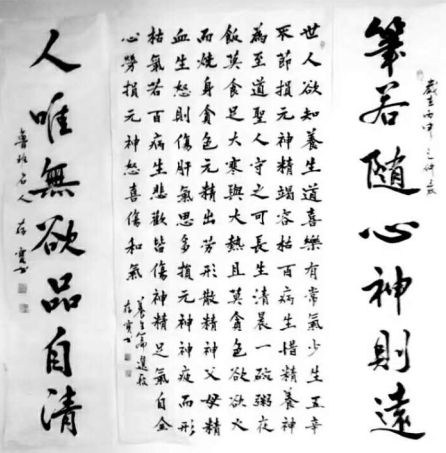 筆若隨心神則遠
歲在丙申之仲夏
世人欲知養生道喜樂有常氣少生五辛
不節損元神精竭容枯百病生惜精養神
為至道聖人守之可長生清晨一碗粥夜
飯莫食足大寒與大熱且莫貪色欲欲火
而燒身貪色元精出勞形散精神父母精
血生怒則傷肝氣思多損元神神疲而形
枯氣若百病生悲歡皆傷神精足氣自全
心勞損元神怒喜傷和氣
養生篇選段
人唯無欲品自清